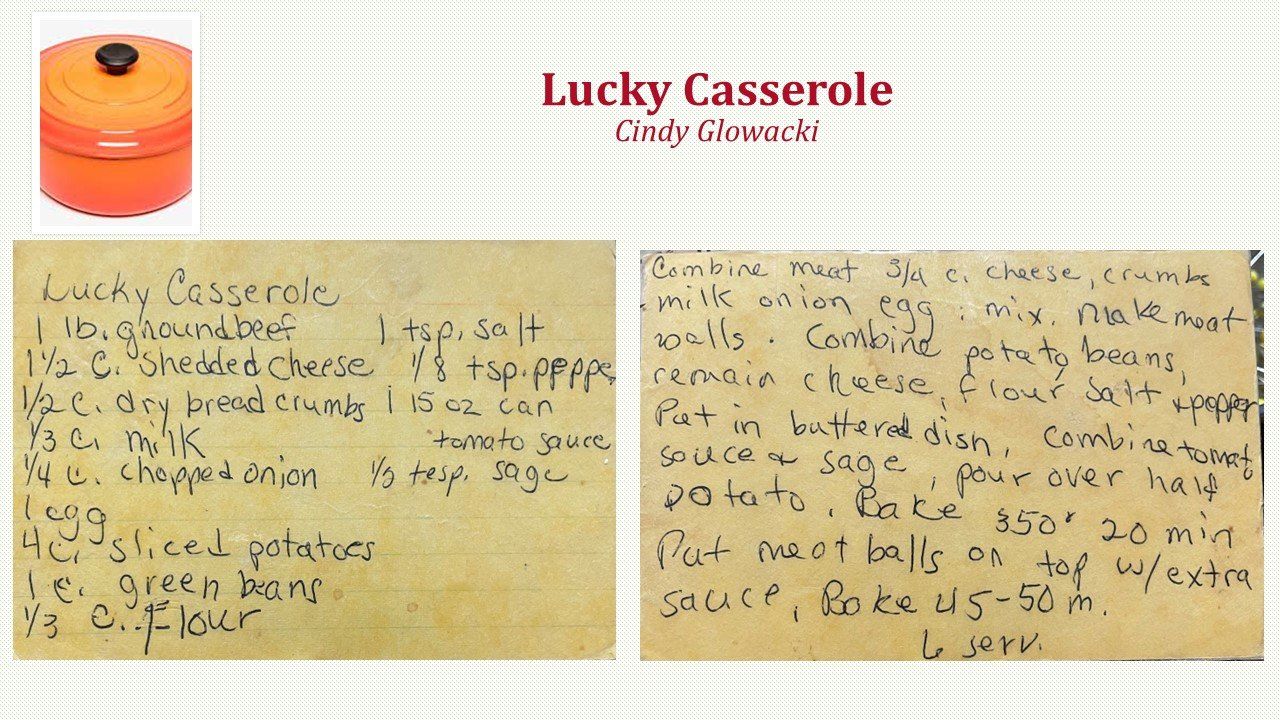 Lucky Casserole
Cindy Glowacki
Lucky Casserole
1 lb. groundbeef
1 1/2 C. Shedded Cheese
1/2 C. dry bread crumbs
1/3 c. milk
1/4 c. chopped onion
1 egg
4 c. sliced potatoes
1 c. green beans
1/3 c. Flour
1 tsp. salt
1/8 tsp. peppe
1 15 oz can
tomato sauce
1/2 tesp. sage
Combine meat 3/4 c. cheese, crumbs
milk onion egg : mix. Make meat
balls. Combine potato beans,
remain cheese, flour salt + pepper
Put in buttered dish, Combine tomato
sauce & sage, pour over half
potato. Bake 350° 20 min
Put meat balls on top w/ extra
sauce, Bake 45-50 m.
6 serv.